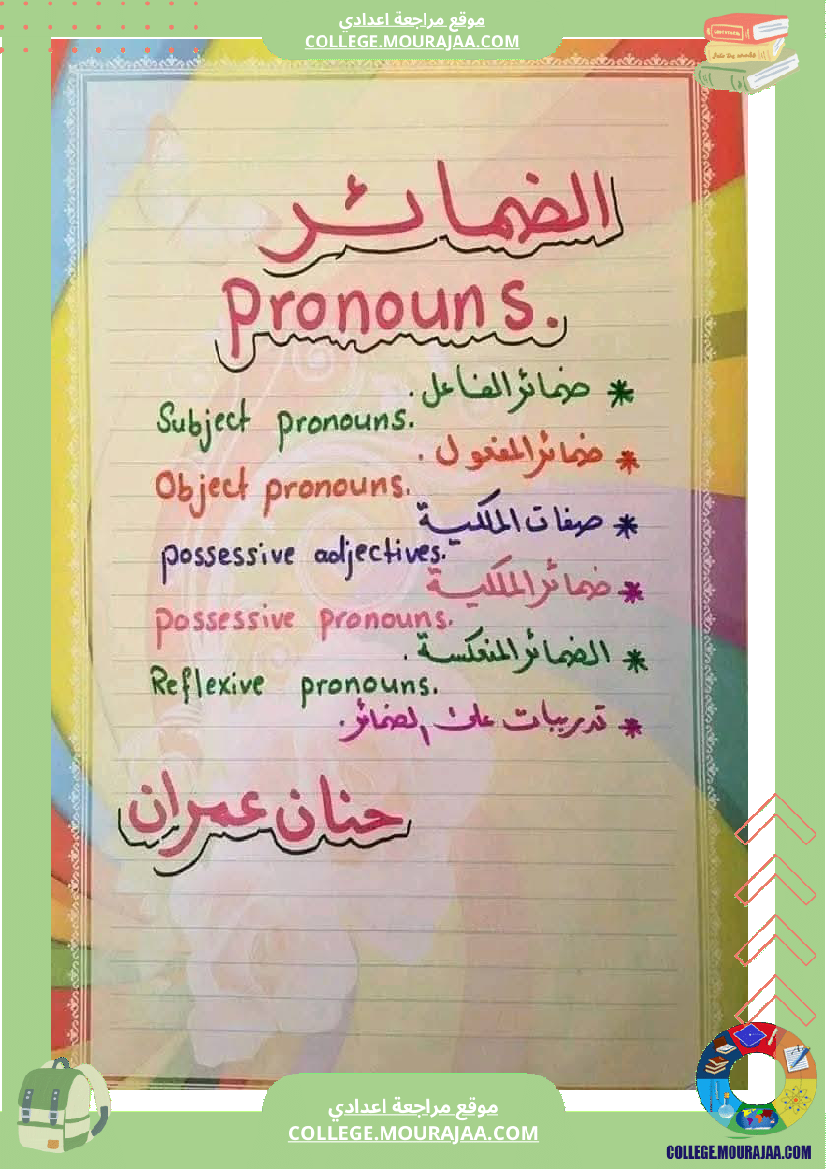 موقع مراجعة اعدادي
COLLEGE.MOURAJAA.COM
الضمائر
Pronouns.
* ضمائر الفاعل.
Subject pronouns.
* ضمائر المفعول.
Object pronouns.
* صفات الملكية
possessive adjectives.
* ضمائر الملكية
possessive pronouns.
* الضمائر المنعكسة.
Reflexive pronouns.
* تدريبات على الضمائر.
حنان عمران
موقع مراجعة اعدادي
COLLEGE.MOURAJAA.COM
COLLEGE.MOURAJAA.COM